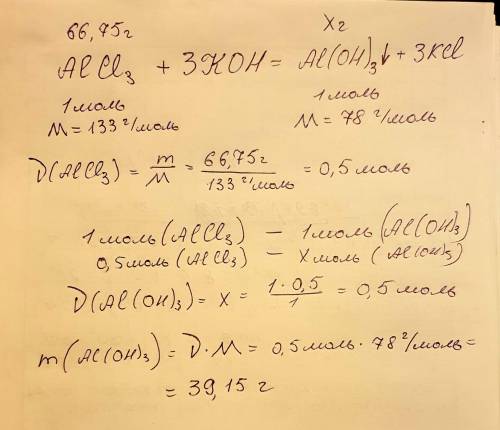 66,75г   Xг
AlCl₃ + 3KOH = Al(OH)₃↓ + 3KCl
1моль   1моль
M = 133 г/моль   M = 78 г/моль
D(AlCl₃) = m/M = 66,75г/133 г/моль = 0,5 моль
1моль(AlCl₃) — 1моль(Al(OH)₃)
0,5моль(AlCl₃) — Xмоль(Al(OH)₃)
D(Al(OH)₃) = X = 1·0,5/1 = 0,5 моль
m(Al(OH)₃) = D·M = 0,5 моль · 78 г/моль =
= 39,15 г